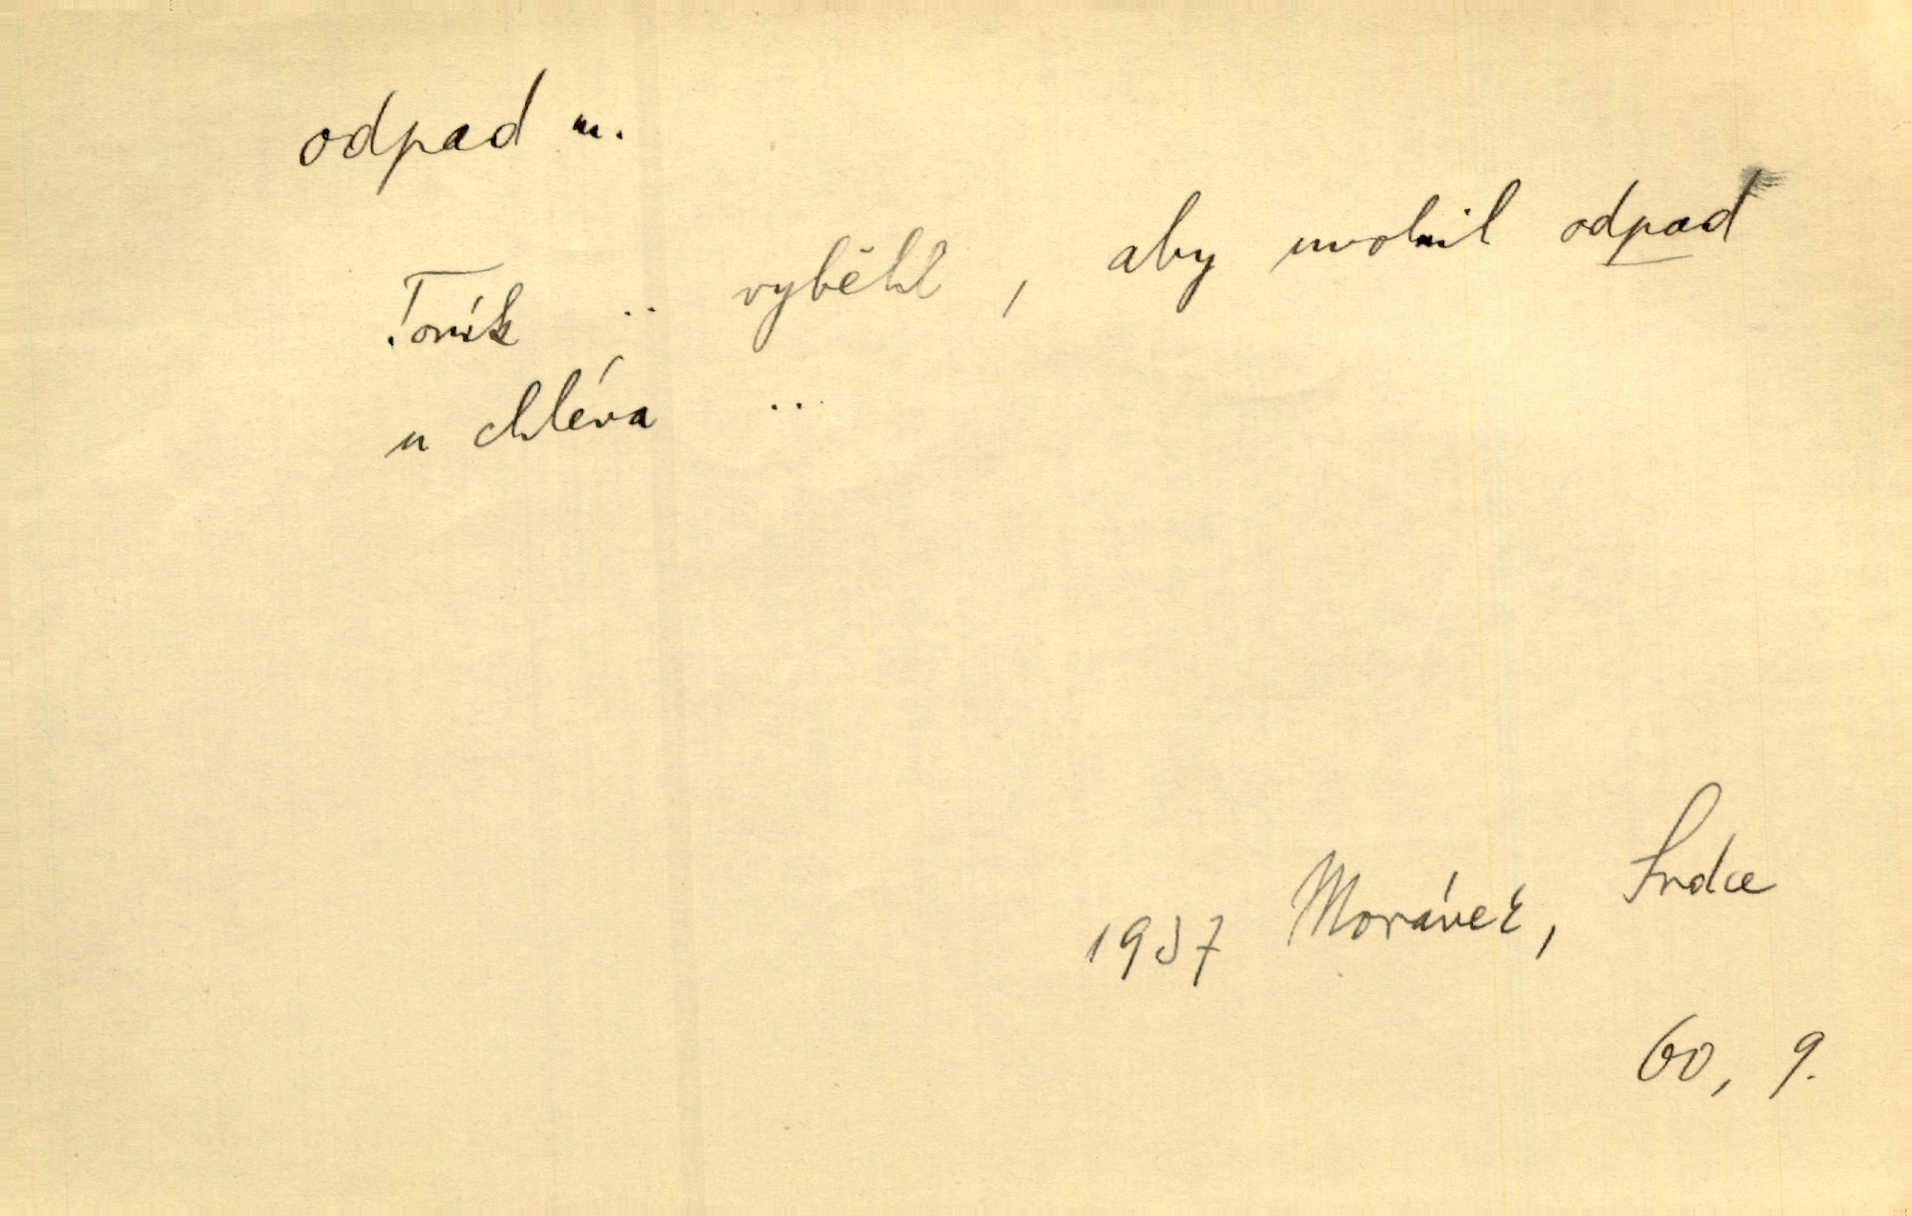 odpad m.
Toník .. vyběhl, aby uvolnil odpad
u chléva ..
1937 Morávek, Srdce
60, 9.